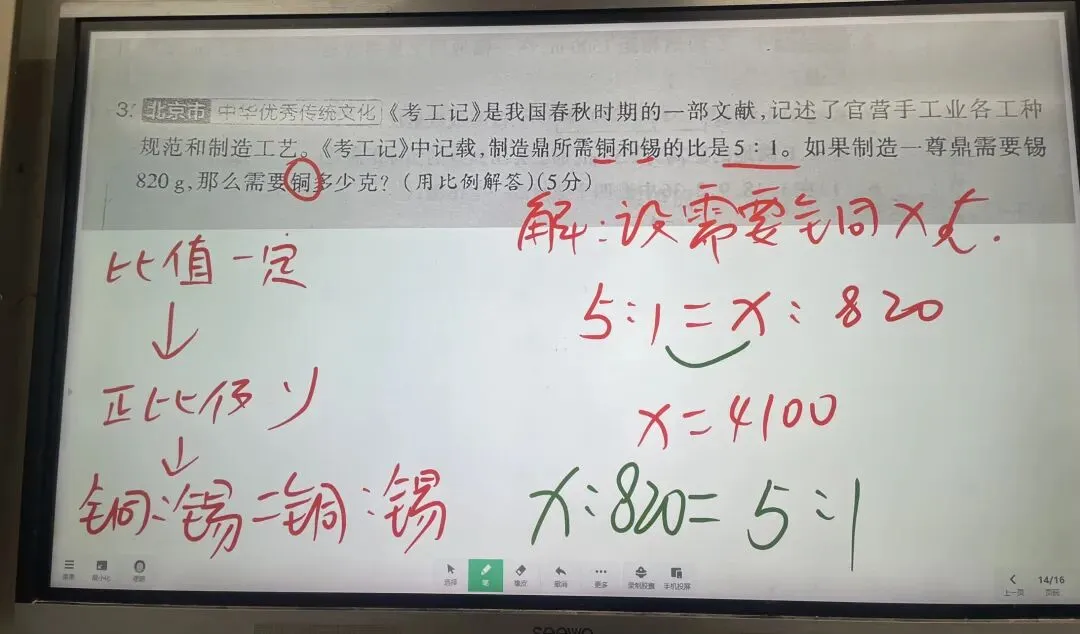 3. 北京市 中华优秀传统文化《考工记》是我国春秋时期的一部文献,记述了官营手工业各工种
规范和制造工艺。《考工记》中记载,制造鼎所需铜和锡的比是5∶1。如果制造一尊鼎需要锡
820 g,那么需要铜多少克?(用比例解答)(5分)
解:设需要铜x克.
比值一定
5:1=x:820
↓
正比例
x=4100
↓
铜:锡=铜:锡
x:820=5:1
选择 笔 橡皮 撤消 更多 录制胶囊 手机投屏
14/16
上一页 页码
seewo